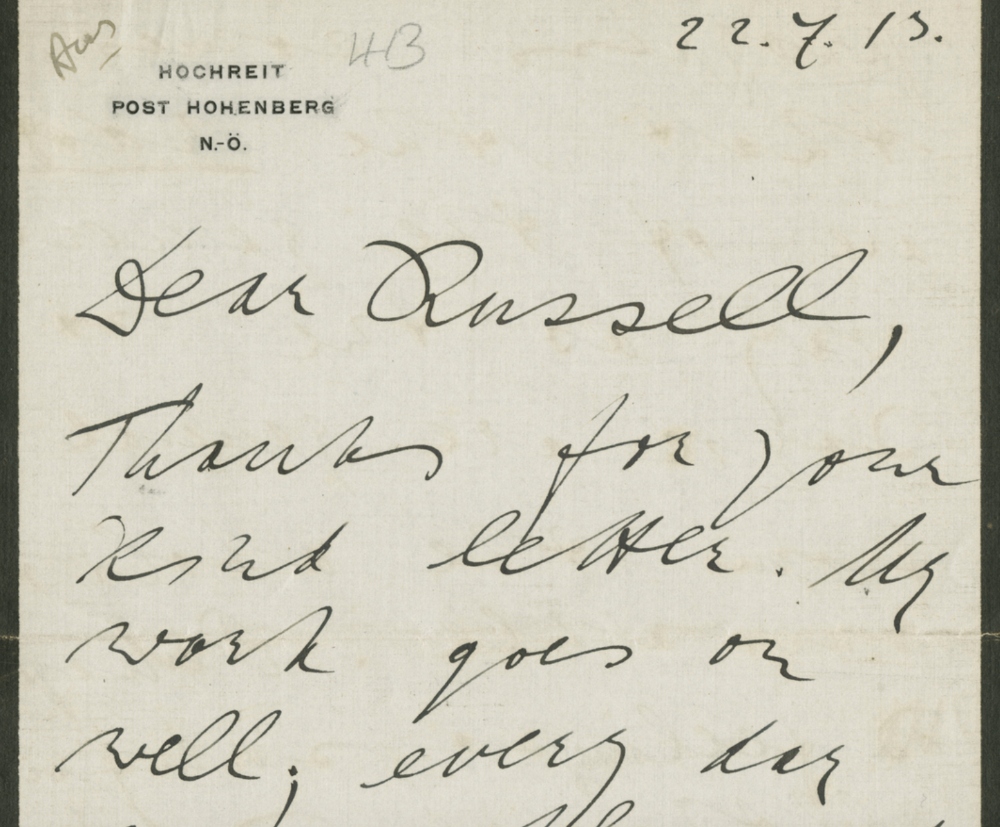 22.7.13.
4B
HOCHREIT
POST HOHENBERG
N.-Ö.
Dear Russell,
Thanks for your
kind letter. My
work goes on
well; every day